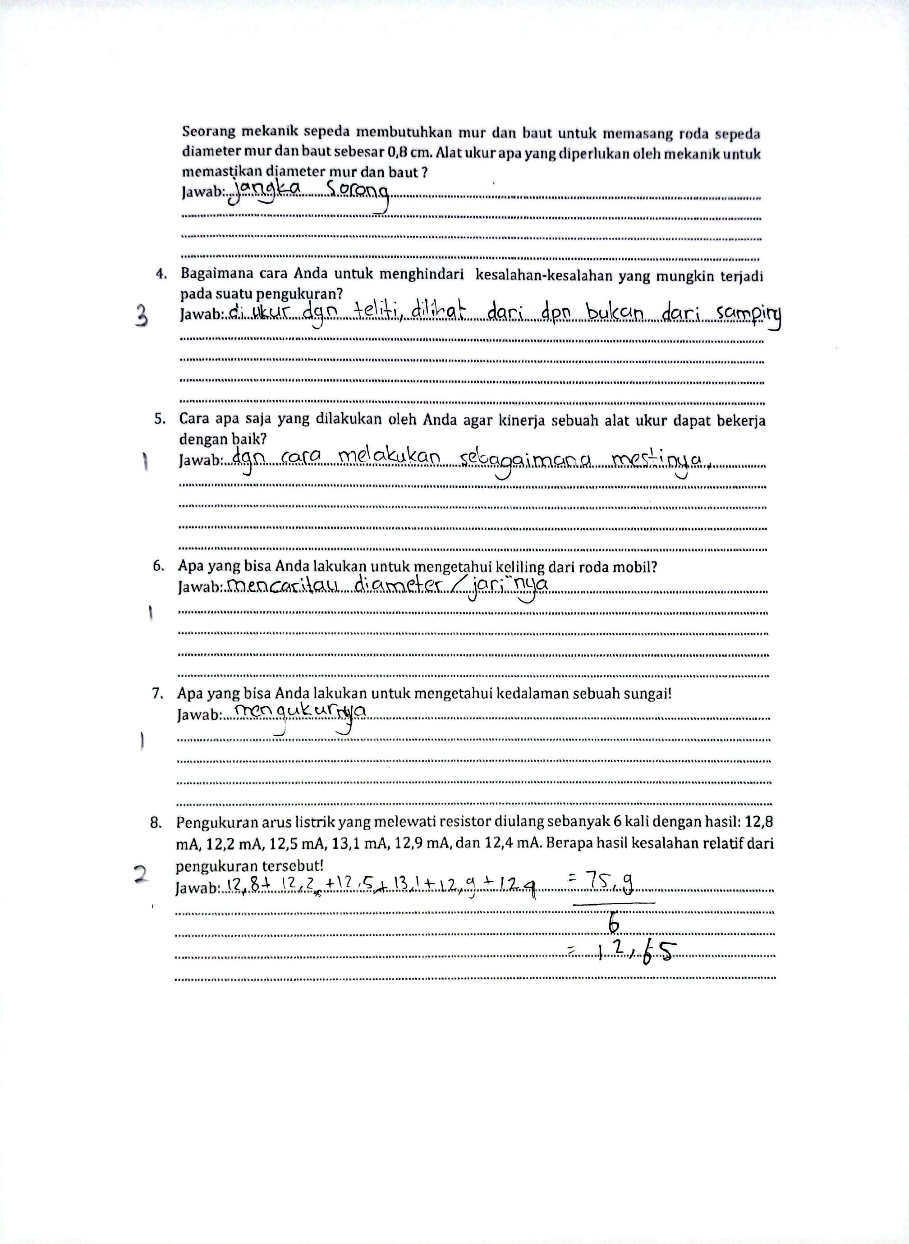 Seorang mekanik sepeda membutuhkan mur dan baut untuk memasang roda sepeda
diameter mur dan baut sebesar 0,8 cm. Alat ukur apa yang diperlukan oleh mekanik untuk
memastikan diameter mur dan baut ?
Jawab: jangka Sorong
4. Bagaimana cara Anda untuk menghindari kesalahan-kesalahan yang mungkin terjadi
pada suatu pengukuran?
3 Jawab: di ukur dgn teliti, dilihat dari dpn bukan dari samping
5. Cara apa saja yang dilakukan oleh Anda agar kinerja sebuah alat ukur dapat bekerja
dengan baik?
1 Jawab: dgn cara melakukan sebagaimana mestinya,
6. Apa yang bisa Anda lakukan untuk mengetahui keliling dari roda mobil?
Jawab: mencaritau diameter / jari"nya
1
7. Apa yang bisa Anda lakukan untuk mengetahui kedalaman sebuah sungai!
Jawab: mengukurnya
1
8. Pengukuran arus listrik yang melewati resistor diulang sebanyak 6 kali dengan hasil: 12,8
mA, 12,2 mA, 12,5 mA, 13,1 mA, 12,9 mA, dan 12,4 mA. Berapa hasil kesalahan relatif dari
2 pengukuran tersebut!
Jawab: 12,8+ 12,2 +12,5+ 13,1+12,9 + 12,4 = 75,9
6
= 12,65